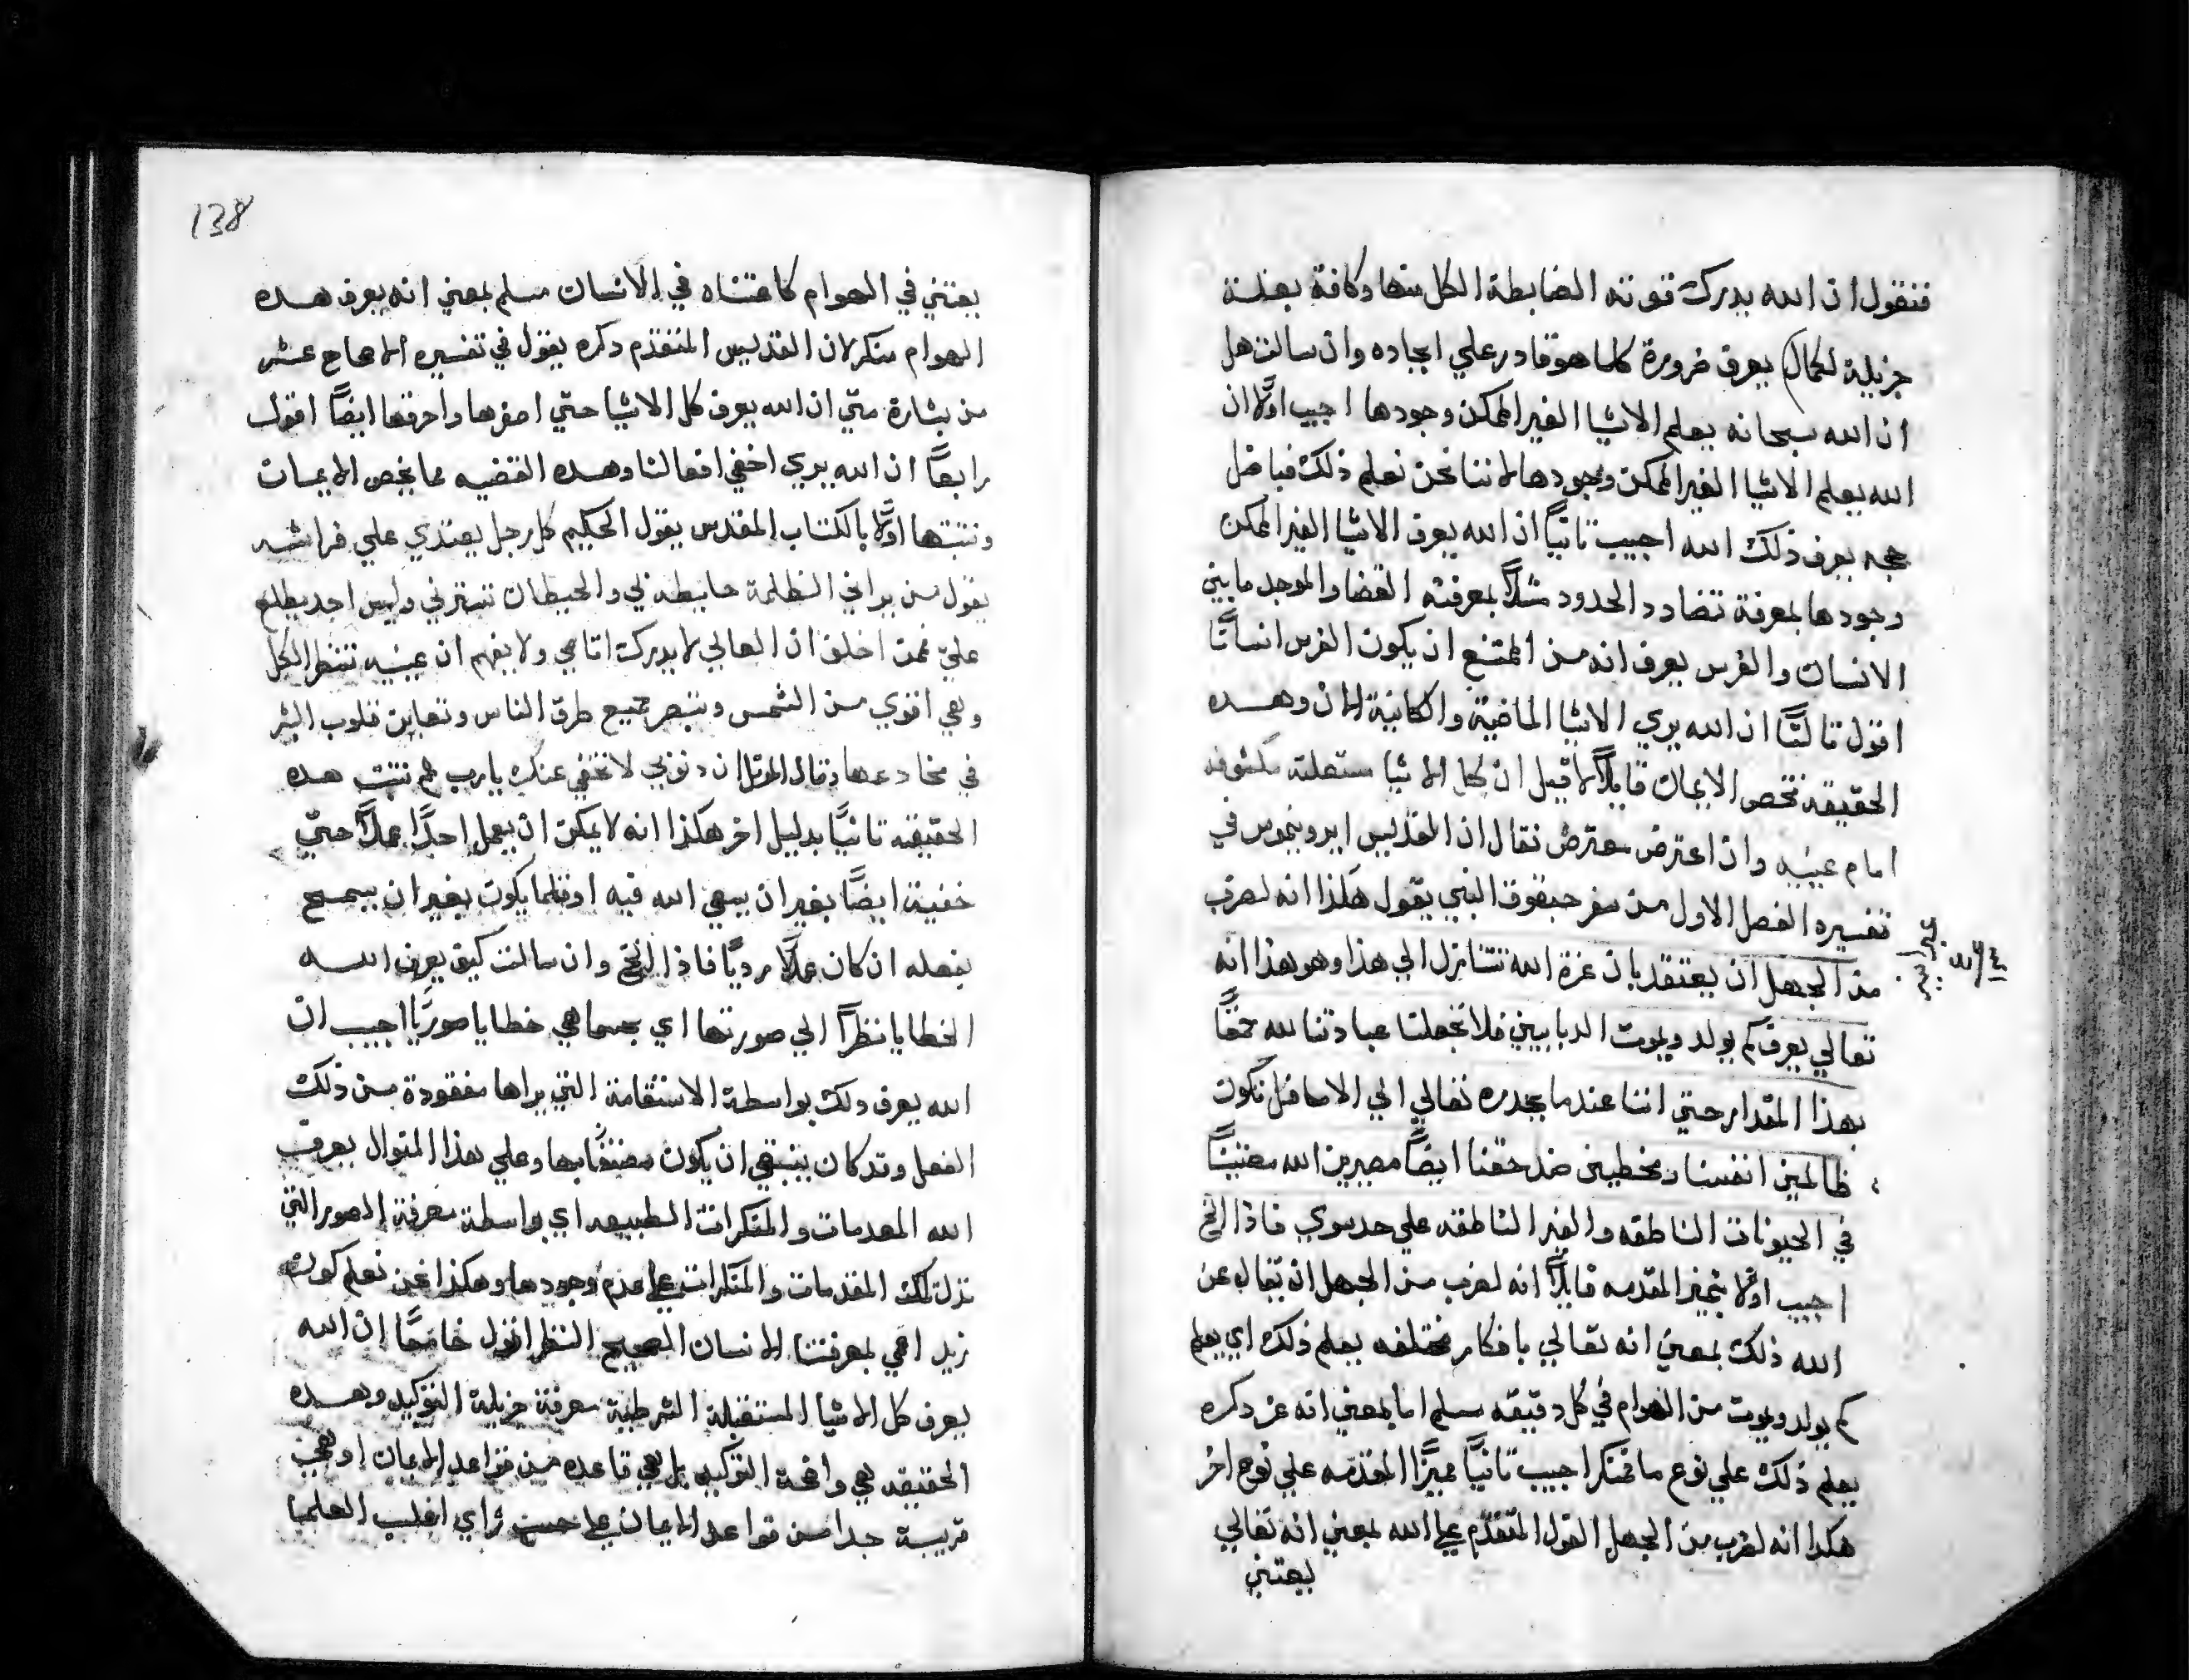 فنقول ان الله يدرك قوته الضابطة الكل منها وكافة بعلمة
جزيلة الكمال يعرف ضرورة كلما هو قادر علي ايجاده وان سالت هل
ان الله سبحانه يعلم الاشيا الغير الممكن وجودها اجيب اولاً ان
الله يعلم الاشيا الغير الممكن وجودها لاننا نحن نعلم ذلك فبافضل
حجه يعرف ذلك الله اجيب ثانياً ان الله يعرف الاشيا الغير الممكن
وجودها بمعرفة تضادد الحدود مثلاً بمعرفته القضا والموجد ما بين
الانسان والفرس يعرف انه من الممتنع ان يكون الفرس انساناً
اقول ثالثاً ان الله يري الاشيا الماضية والكاينة الان وهده
الحقيقه تخص الايمان قايلاً لاقيل ان كل الاشيا مستعلنه مكشوفه
امام عينيه وان اعترض معترض نقال ان القديس ايرونيموس في
تفسيره الفصل الاول من سفر حبقوق النبي يقول هكذا انه لغرب
من الجهل ان يعتقد بان عزة الله تتنازل الي هذا وهو هذا انه
تعالي يعرف كم يولد ويموت الدبابيين فلا تجعلنا عبادتنا لله حمقاً
بهذا المقدار حتي اننا عندما نحدره تعالي الي الاسافل نكون
ظالمين انفسنا ومخطيين ضد حقنا ايضاً مصيرين الله معتنياً
في الحيونات الناطقه والغير الناطقه علي حد سوي فاذا الخ
اجيب اولاً بتميز المقدمه قايلاً انه لغرب من الجهل ان يقال عن
الله ذلك بمعني انه تعالي بافكار مختلفه يعلم ذلك اي يعلم
كم يولد ويموت من الهوام في كل دقيقه مسلم اما بمعني انه عز دكره
يعلم ذلك علي نوع ما فمنكر اجيب ثانياً مميزاً المقدمه علي نوع اخر
هكدا انه لغرب من الجهل القول المتقدم علي الله بمعني انه تعالي
يعتني
138
يعتني في الهوام كاعتناه في الانسان مسلم بمعني انه يعرف هده
الهوام منكر لان القديس المتقدم دكره يقول في تفسيره الاصحاح عشر
من بشارة متي ان الله يعرف كل الاشيا حتي اصغرها واحرقها ايضاً اقول
رابعاً ان الله يري اخفي افعالنا وهده القضيه مما يخص الايمان
ونتبتها اولاً بالكتاب المقدس يقول الحكيم كل رجل يعتدي علي فراشه
يقول من يراني الظلمة حايطه بي والحيطان تسترني وليس احد يطلع
عليّ فممن اخلف ان العالي لا يدرك اتامي ولا يفهم ان عينيه تنظر الكل
وهي اقوي من الشمس وتبصر جميع طرق الناس وتعاين قلوب البشر
في مخادعها وقال المرتل ان دنوبي لا تخفي عنك يارب ثم نتبت هده
الحقيقه تانياً بدليل اخر هكذا انه لا يمكن ان يعمل احداً عملاً حتي
خفيةً ايضاً بغير ان يسعي الله فيه او قلما يكون بغير ان يسمح
بفعله ان كان عملاً ردياً فاذا الخ وان سالت كيف يعرف الله
الخطايا نظراً الي صورتها اي بحسبما هي خطايا صورياً اجيب ان
الله يعرف دلك بواسطة الاستقامة التي يراها مفقودة من ذلك
الفعل وقد كان ينبغي ان يكون متصفاً بها وعلي هذا المنوال يعرف
الله المعدمات والمنكرات الطبيعه اي بواسطة معرفة الصور التي
تدل تلك المقدمات والمنكرات علي عدم وجودها وهكذا نحن نعلم كون
زيد اعمي بمعرفتنا الانسان الصحيح النظر اقول خامساً ان الله
يعرف كل الاشيا المستقبلة الشرطية معرفة جزيلة التوكيد وهده
الحقيقه هي واضحة التوكيد بل هي قاعده من قواعد الايمان او هي
قريبة جدا من قواعد الايمان علي حسب راي اغلب العلما